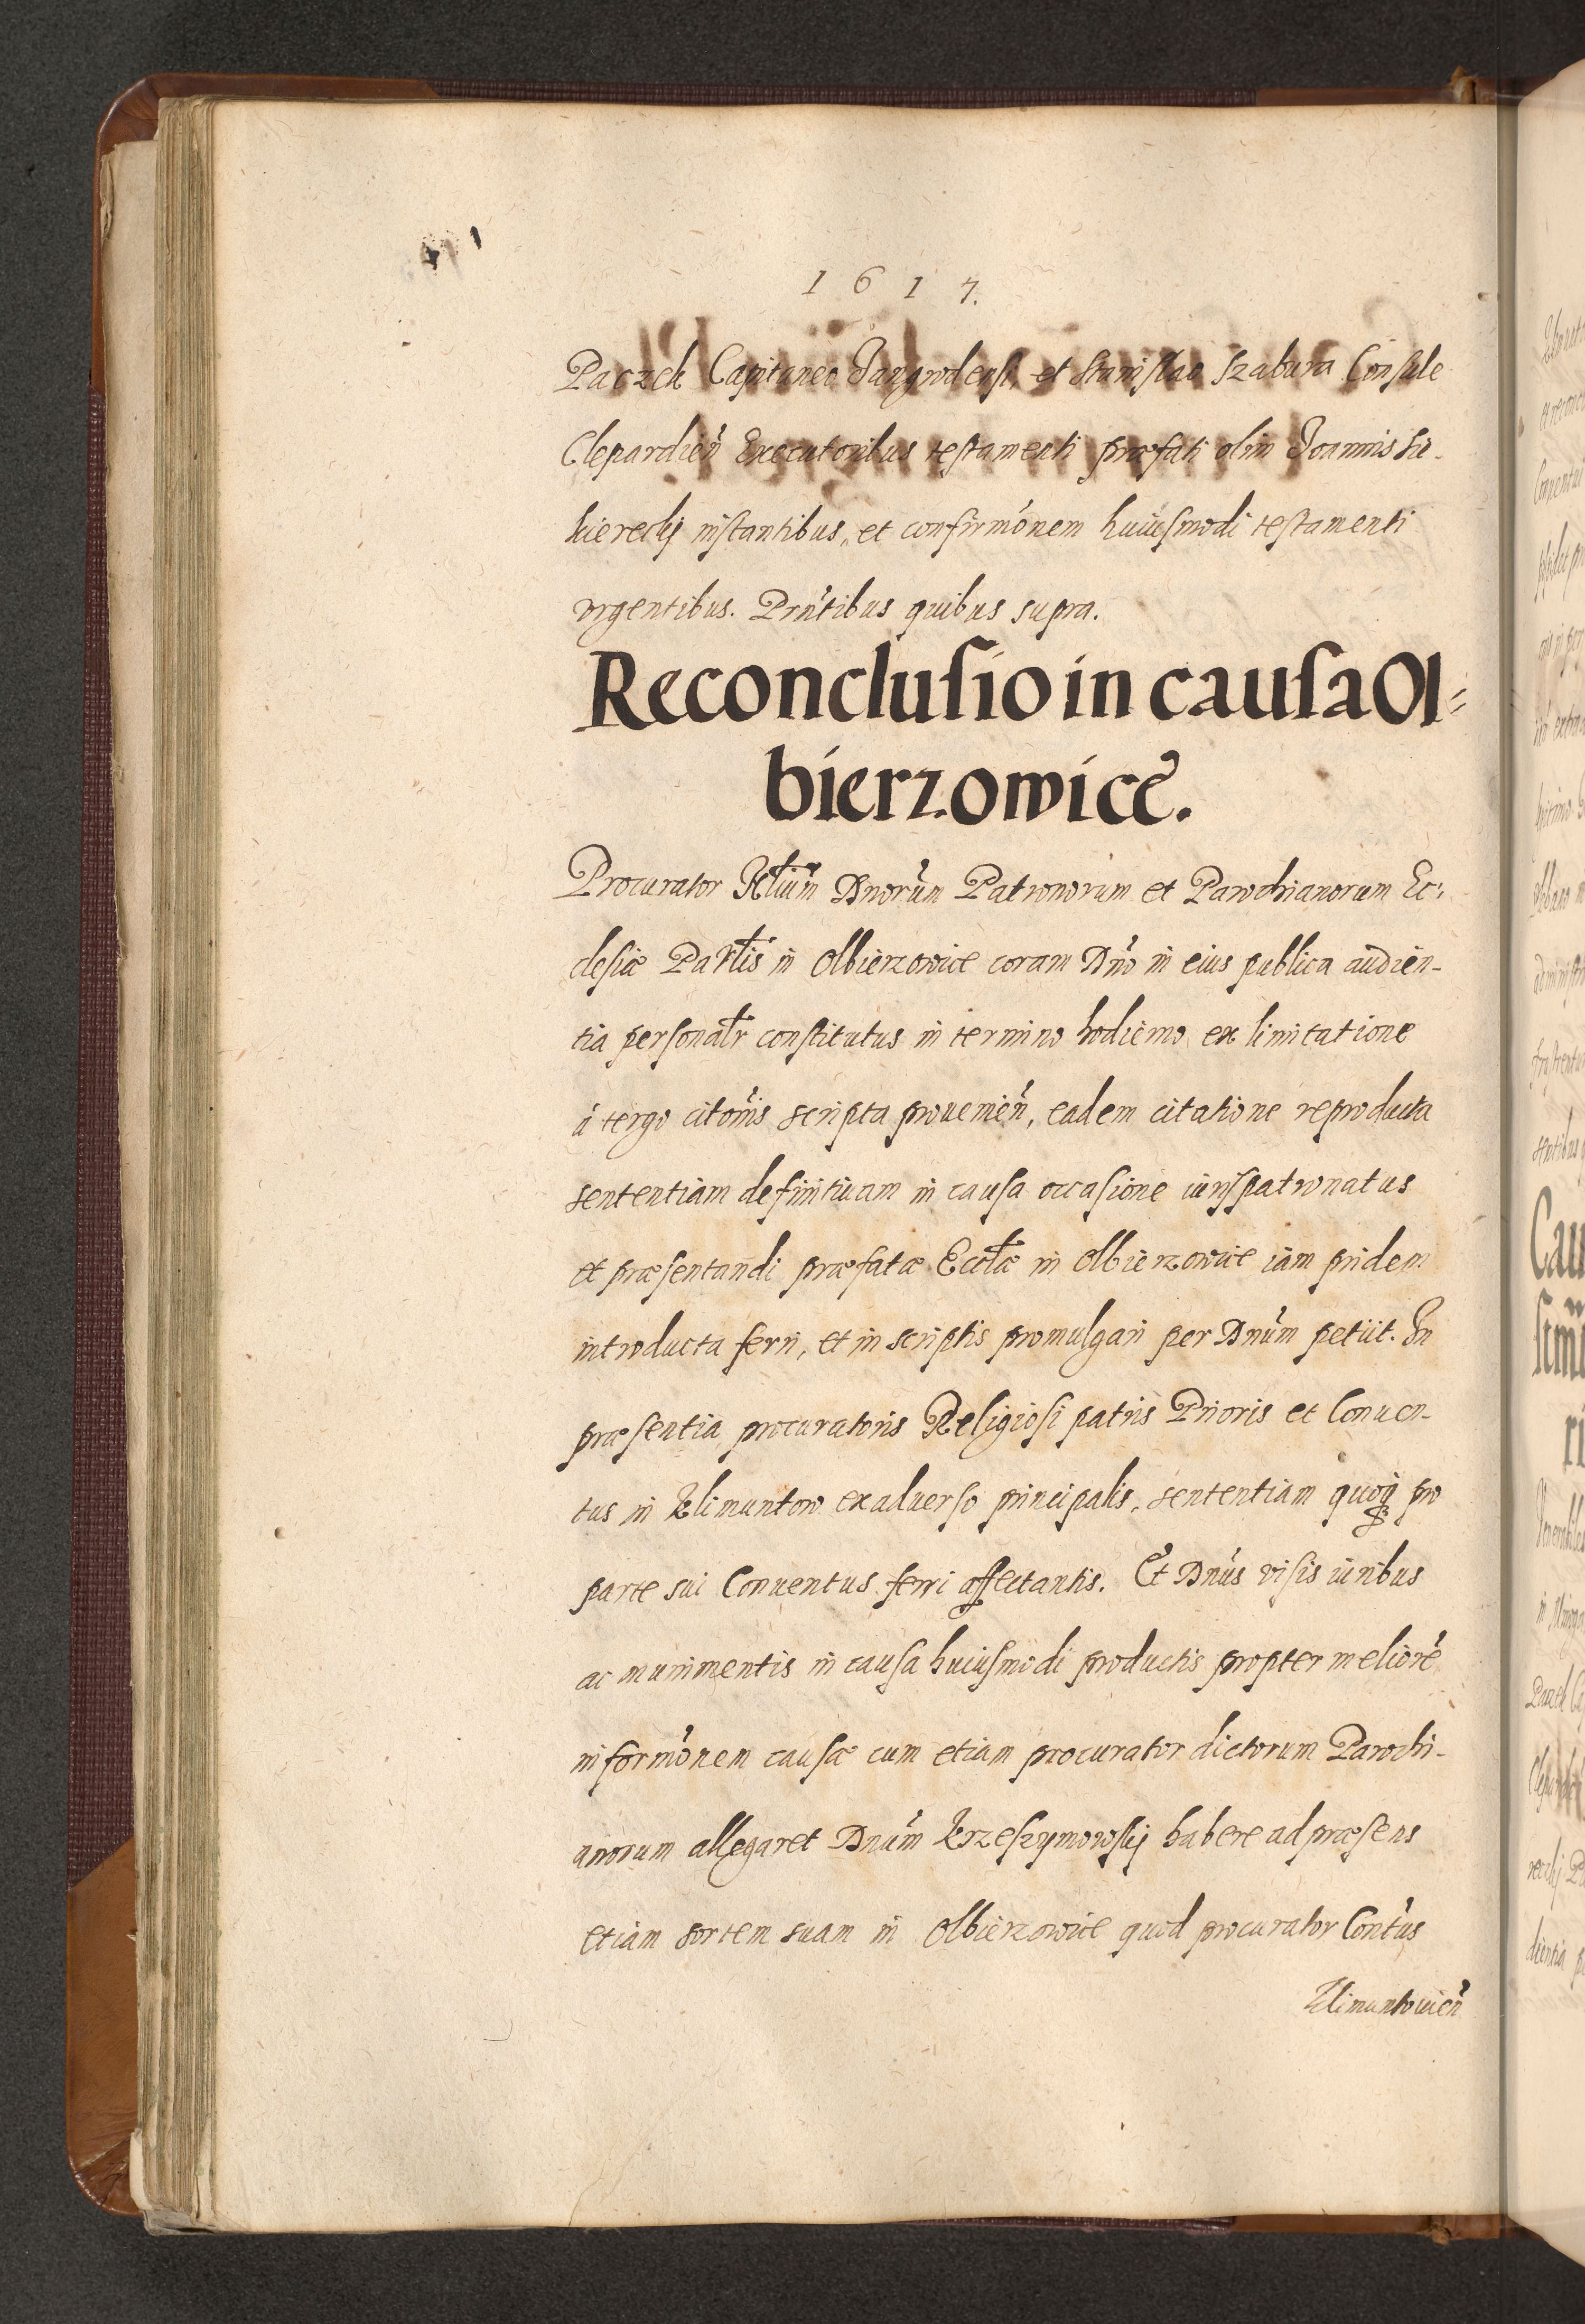 1617.
Paczek Capitaneo Tangrodensi, et Stanislao Szabura Consule
Clepardieñ Executoribus testamenti præfati olim Joannis Sie-
kierechij instantibus, et confirmonem huiusmodi testamenti
vrgentibus. Prntibus quibus supra.
Reconclusio in causa Ol-
bierzowice.
Procurator Dnorum Patronorum et Parochianorum Ec-
clesiæ Partlis in Olbierzowice coram Dno in eius publica audien-
tia personalr constitutus in termino hodierno ex limitatione
à tergo citonis scripta prouenieñ, eadem citatione reproducta
sententiam definitiuam in causa occasione iurispatronatus
et præsentandi præfatæ Ecclæ in Olbierzowice iam pridem
introducta ferri, et in scriptis promulgari per Dnum petiit. In
præsentia procuratoris Religiosi patris Prioris et Conuen-
tus in Klimuntow ex aduerso principalis, sententiam quoq pro
parte sui Conuentus ferri affectantis. Et Dnus visis iuribus
ac munimentis in causa huiusmodi productis propter meliorẽ
informonem causæ cum etiam procurator dictorum Parochi-
anorum allegaret Dnum Krzeszymowskij habere ad præsens
etiam sortem suam in Olbierzowice quod procurator Contus
Klimuntouieñ